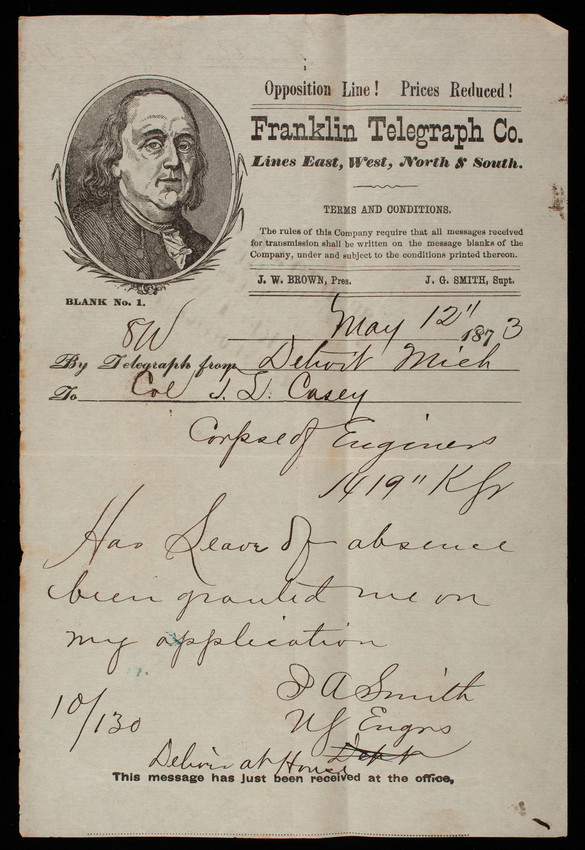 Opposition Line! Prices Reduced!
Franklin Telegraph Co.
Lines East, West, North & South.
TERMS AND CONDITIONS.
The rules of this Company require that all messages received
for transmission shall be written on the message blanks of the
Company, under and subject to the conditions printed thereon.
J. W. BROWN, Pres. J. G. SMITH, Supt.
BLANK No. 1.
May 12" 1873
By Telegraph from Detroit Mich
To Col T. L. Casey
Corpse of Enginers
1419"
Has Leave of absence
been granted me on
my application
J A Smith
US Engrs
Dept
10/130
Deliver at House
This message has just been received at the office,